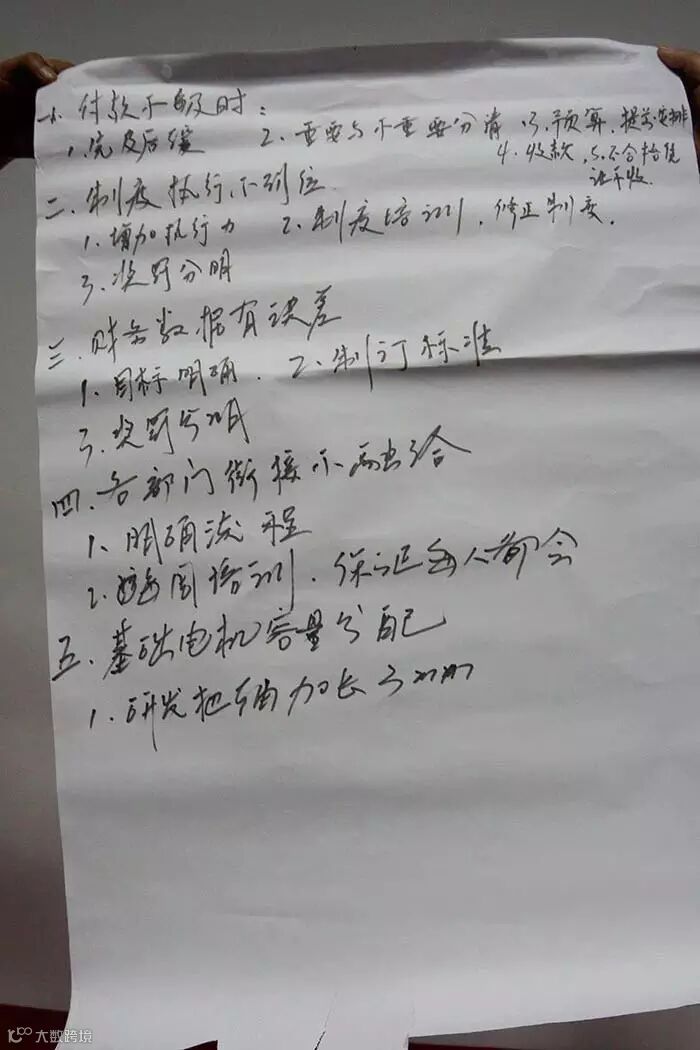 一、付款不及时：
1、先及后缓 2、重要与不重要分清 3、预算，提前安排
4、收款 5、不合格货
让不收
二、制度执行不到位
1、增加执行力 2、制度培训，修正制度。
3、奖罚分明
三、财务数据有误差
1、目标明确、 2、制订标准
3、奖罚分明
四、各部门衔接不融合
1、明确流程
2、每周培训、保证每人都会
五、基础电机容量分配
1、研发把轴加长3mm
大数跨境